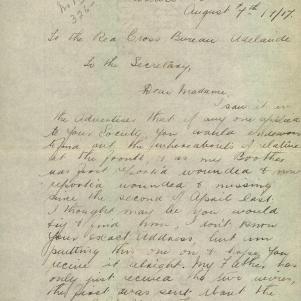 August 7th 1917
To the Red Cross Bureau Adelaide
To the Secretary,
Dear Madame,
I saw it in
the Advertiser that if any one applied
to your Society, you would endeavour
to find out the whereabouts of relative
at the front, & as my Brother
was first reported wounded & now
reported wounded & missing
since the second of April last.
I thought may be you would
try & find him, I don't know
your exact address, but im
putting this one on & hope you
receive it alright. My Father has
only just received the two wires,
the first was sent about the